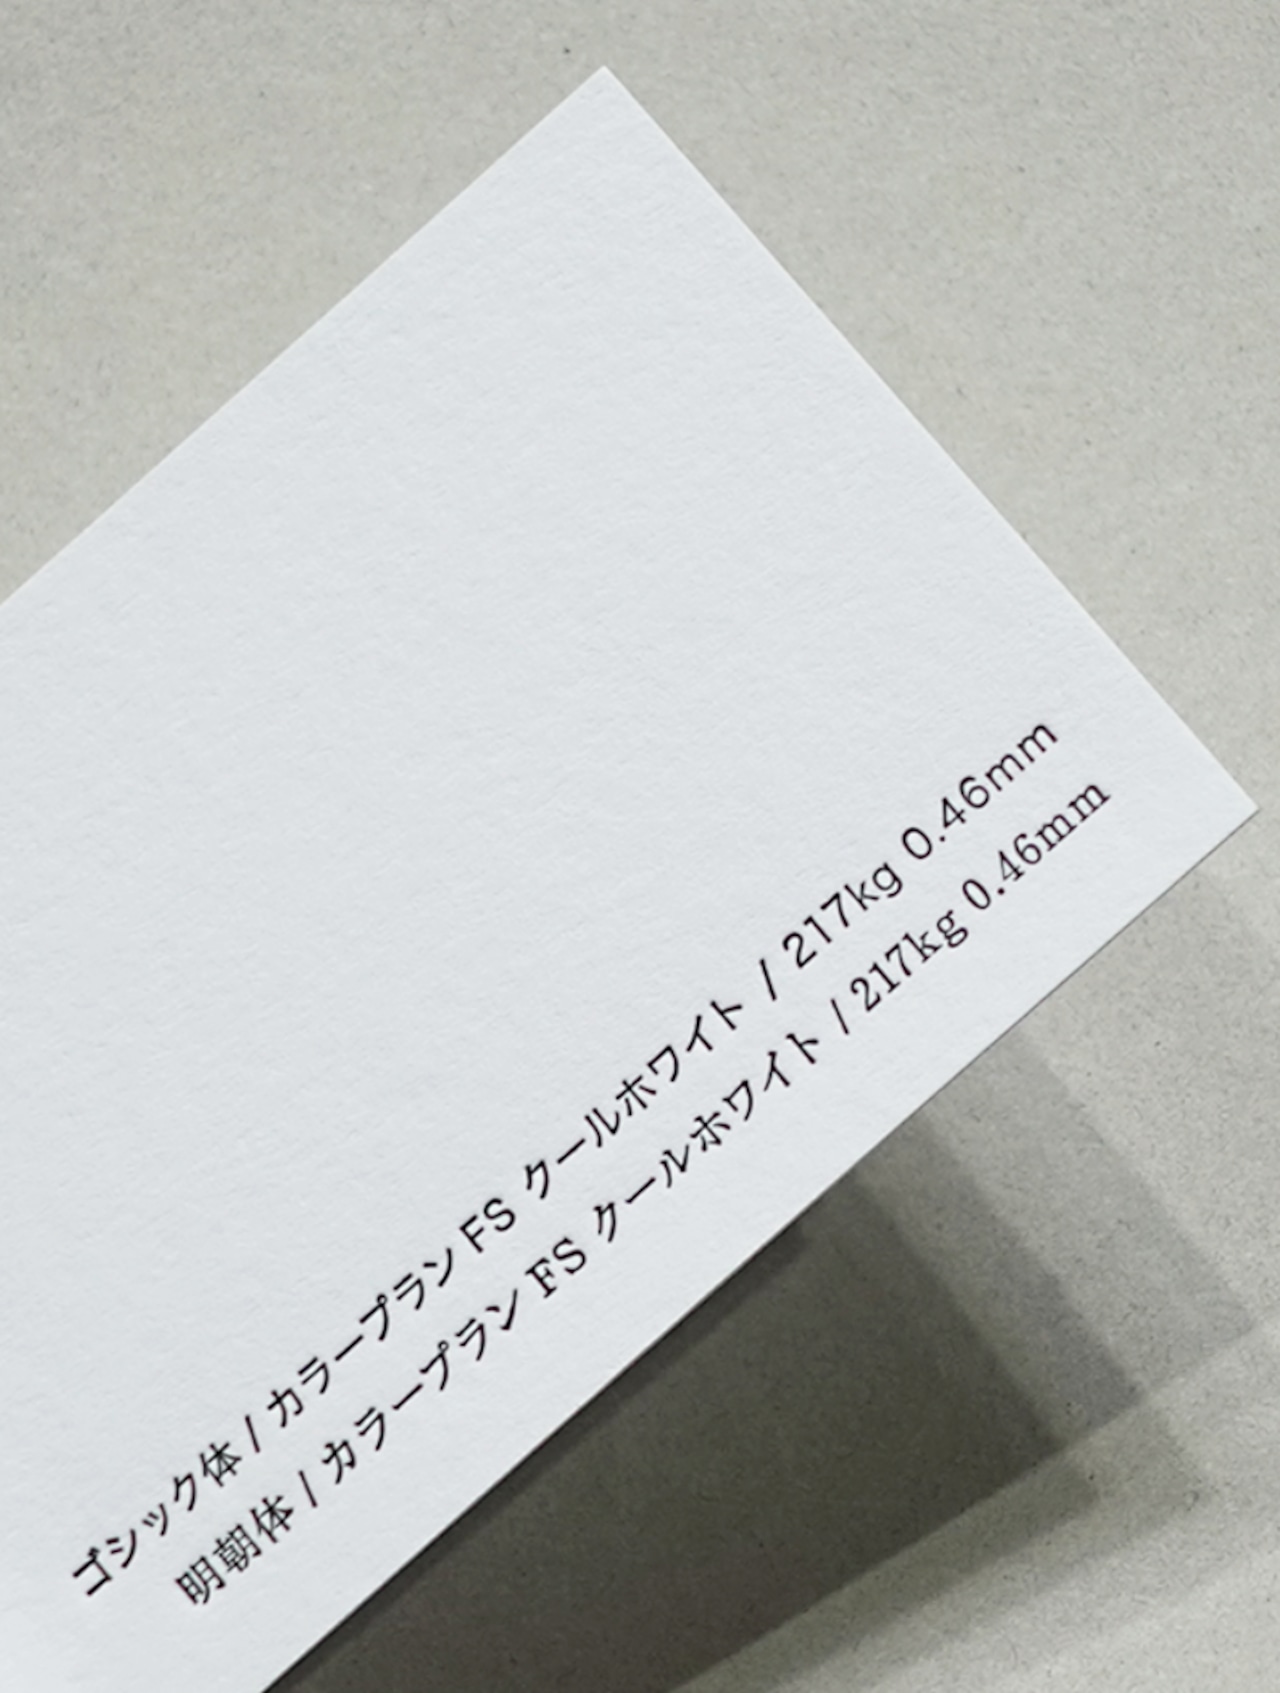 ゴシック体 / カラープラン FS クールホワイト / 217kg 0.46mm
明朝体 / カラープラン FS クールホワイト / 217kg 0.46mm